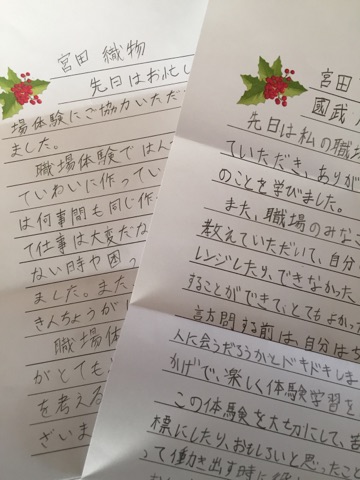 宮田 織物
先日はお忙し
場体験にご協力いただ
ました。
職場体験では人
ていねいに作ってい
は何事間も同じ作
て仕事は大変だな
ない時や困っ
ました。また
きんちょうが
職場体
がとても
を考える
ざいま
宮田
國武
先日は私の職場
ていただき、ありが
のことを学びました。
また、職場のみなさ
教えていただいて、自分
レンジしたり、できなかった
することができて、とてもよかっ
訪問する前は、自分はち
人に会うだろうかとドキドキしま
かげで、楽しく体験学習を
この体験を大切にして、苦
標にしたり、おもしろいと思ったこと
って働き出す時に